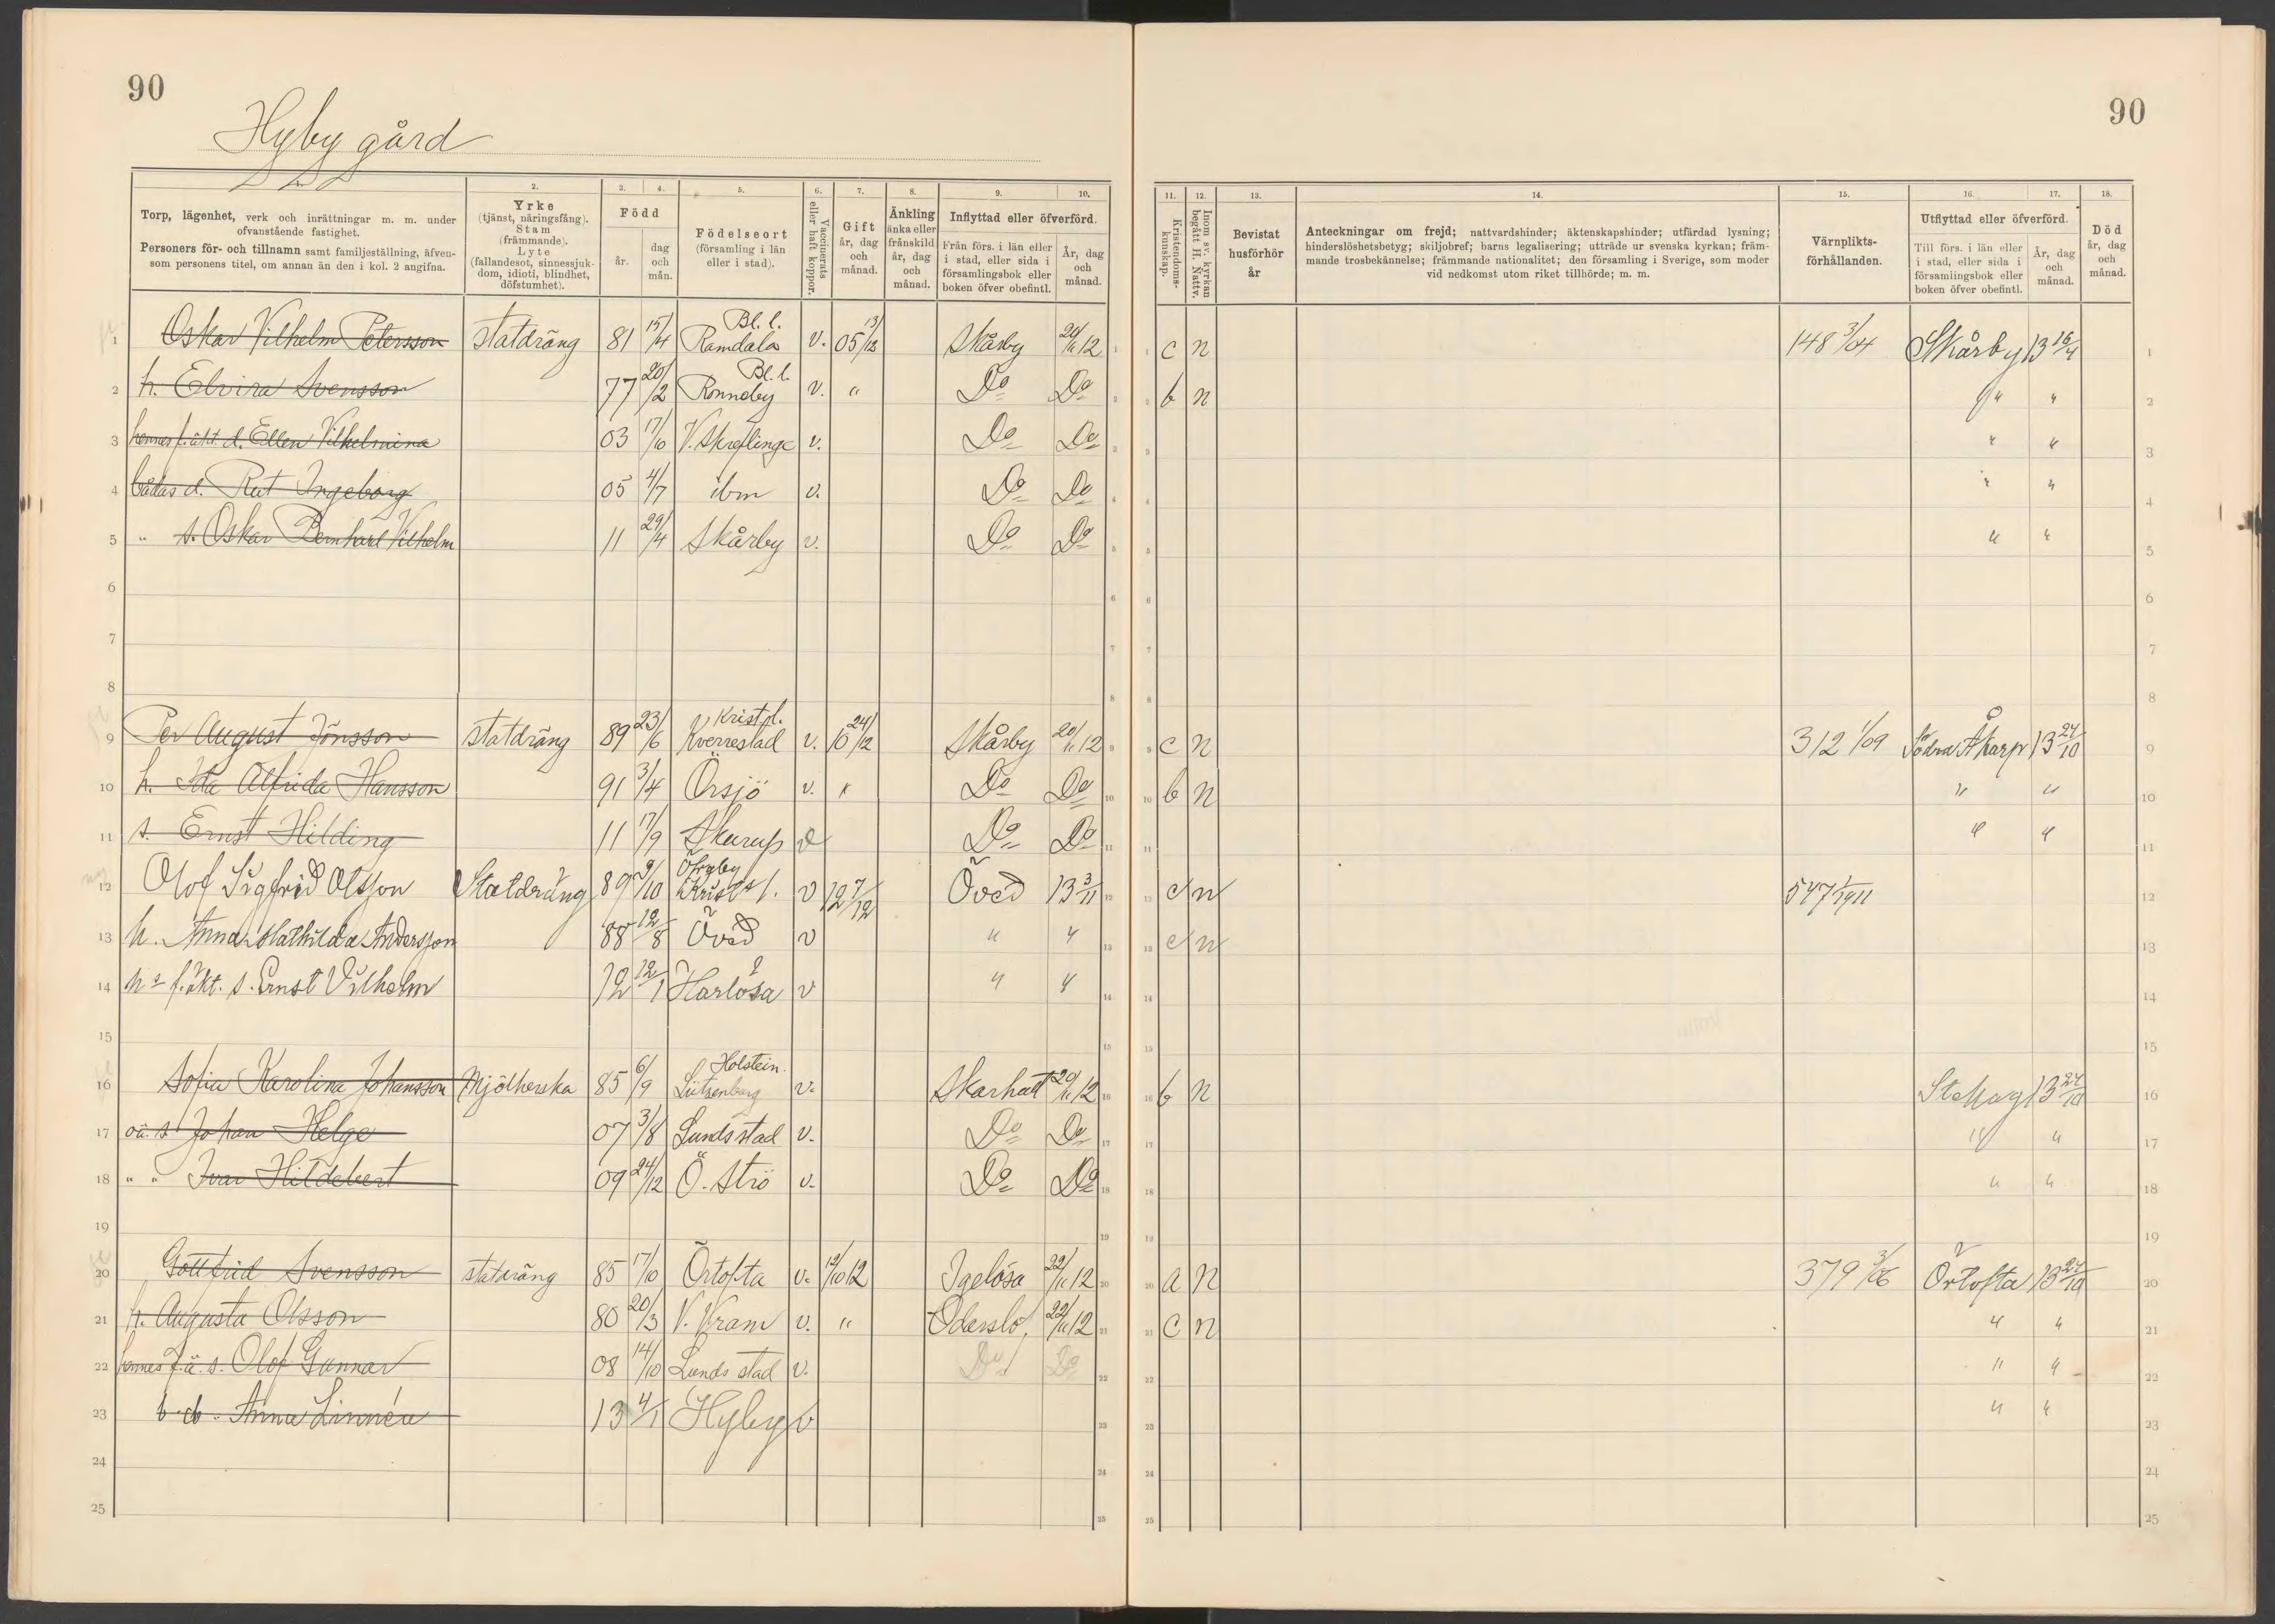 90
90
Hyby gård
Torp, lägenhet, verk och inrättningar m. m. under ofvanstående fastighet.
Personers för- och tillnamn samt familjeställning, äfvensom personens titel, om annan än den i kol. 2 angifna.
2. Yrke (tjänst, näringsfång). Stam (främmande). Lyte (fallandesot, sinnessjukdom, idioti, blindhet, döfstumhet).
3. 4. Född
år. dag och mån.
5. Födelseort (församling i län eller i stad).
6. Vaccinerats eller haft koppor.
7. Gift år, dag och månad.
8. Änkling änka eller frånskild år, dag och månad.
9. 10. Inflyttad eller öfverförd.
Från förs. i län eller i stad, eller sida i församlingsbok eller boken öfver obefintl.
År, dag och månad.
11. Kristendomskunskap.
12. Inom sv. kyrkan begått H. Nattv.
13. Bevistat husförhör år
14. Anteckningar om frejd; nattvardshinder; äktenskapshinder; utfärdad lysning; hinderslöshetsbetyg; skiljobref; barns legalisering; utträde ur svenska kyrkan; främmande trosbekännelse; främmande nationalitet; den församling i Sverige, som moder vid nedkomst utom riket tillhörde; m. m.
15. Värnpliktsförhållanden.
16. 17. Utflyttad eller öfverförd.
Till förs. i län eller i stad, eller sida i församlingsbok eller boken öfver obefintl.
År, dag och månad.
18. Död år, dag och månad.
1 Oskar Vilhelm Petersson statdräng 81 15/4 Bl. l. Ramdala v. 05 13/12 Skårby 20/11 12 c n 148 3/04 Skårby 13 16/4
2 h. Elvira Svensson 77 20/2 Bl. l. Ronneby v. " Do Do b n " "
3 hennes f. äkt. d. Ellen Vilhelmina 03 17/10 V. Skreflinge v. Do Do " "
4 bådas d. Rut Ingeborg 05 4/7 ibm v. Do Do " "
5 " s. Oskar Bernhard Vilhelm 11 29/4 Skårby v. Do Do " "
6
7
8
9 Per August Jönsson statdräng 89 23/6 Krist. l. Kverrestad v. 10 24/12 Skårby 20/11 12 c n 312 1/09 Södra Åkarp 13 24/10
10 h. Ida Alfrida Hansson 91 3/4 Örsjö v. " Do Do b n " "
11 s. Ernst Hilding 11 17/9 Skurup v Do Do " "
12 Olof Sigfrid Olsson Statdräng 89 9/10 Öfraby Krist. l. v 12 7/12 Öved 13 3/11 c n 547 1/1911
13 h. Anna Mathilda Andersson 88 12/8 Öved v " " c n
14 hs f. äkt. s. Ernst Vilhelm 12 12/1 Harlösa v " "
15
16 Sofia Karolina Johansson Mjölkerska 85 6/9 Holstein. Lütsenburg v. Skarhult 20/11 12 b n Stehag 13 24/10
17 oä. s Johan Helge 07 3/8 Lunds stad v. Do Do " "
18 " " Ivar Hildebert 09 24/12 Ö. Strö v. Do Do " "
19
20 Gottfrid Svensson statdräng 85 17/10 Örtofta v. 19/10 12 Igelösa 22/11 12 a n 379 3/06 Örtofta 13 24/10
21 h. Augusta Olsson 80 20/3 V. Vram v. " Oderslöf 22/11 12 c n " "
22 hennes f. ä. s. Olof Gunnar 08 14/10 Lunds stad v. Do Do " "
23 b. d. Anna Linnéa 13 4/1 Hyby v " "
24
25